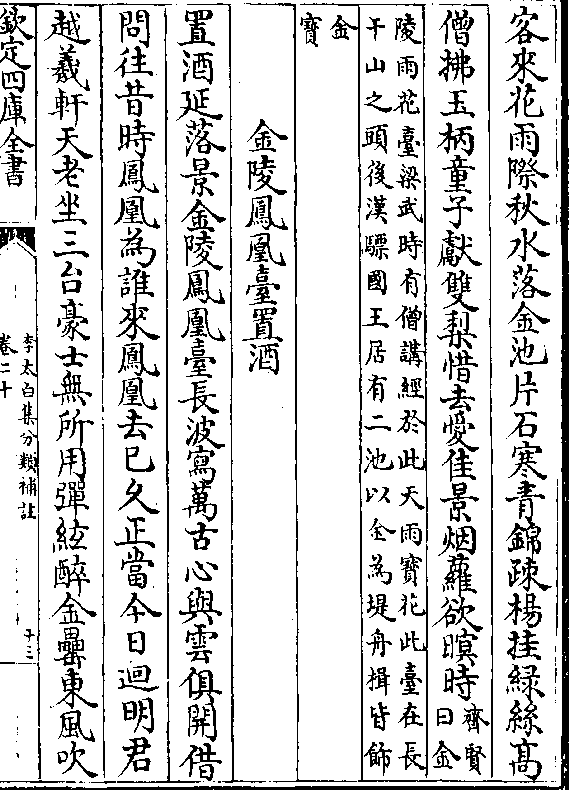 客來花雨際秋水落金池片石寒青錦疎楊挂緑絲髙
僧拂玉柄童子獻雙梨惜去愛佳景烟蘿欲瞑時
齊賢
曰金
陵雨花臺梁武時有僧講經於此天雨寶花此臺在長
干山之頭後漢驃國王居有二池以金為堤舟楫皆飾
金
寶
金陵鳳凰臺置酒
置酒延落景金陵鳳凰臺長波寫萬古心與雲俱開借
問往昔時鳳凰為誰來鳳凰去已久正當今日迴明君
越羲軒天老坐三台豪士無所用彈絃醉金罍東風吹
欽定四庫全書
李太白集分類補註
卷二十
十三